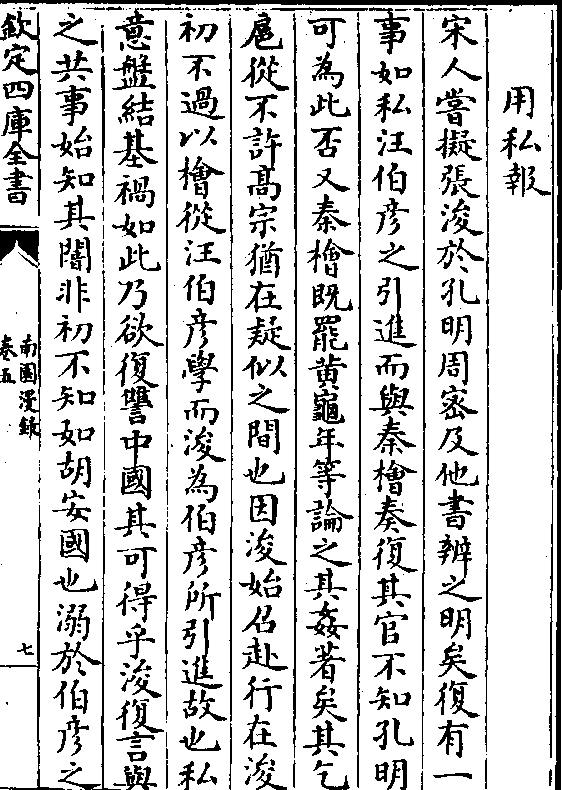 用私報
宋人嘗擬張浚於孔明周密及他書辨之明矣復有一
事如私汪伯彦之引進而與秦檜奏復其官不知孔明
可為此否又秦檜既罷黄龜年等論之其姦著矣其乞
扈從不許髙宗猶在疑似之間也因浚始召赴行在浚
初不過以檜從汪伯彦學而浚為伯彦所引進故也私
意盤結基禍如此乃欲復讐中國其可得乎浚復言與
之共事始知其闇非初不知如胡安國也溺於伯彦之
欽定四庫全書
南園漫錄
卷五
七